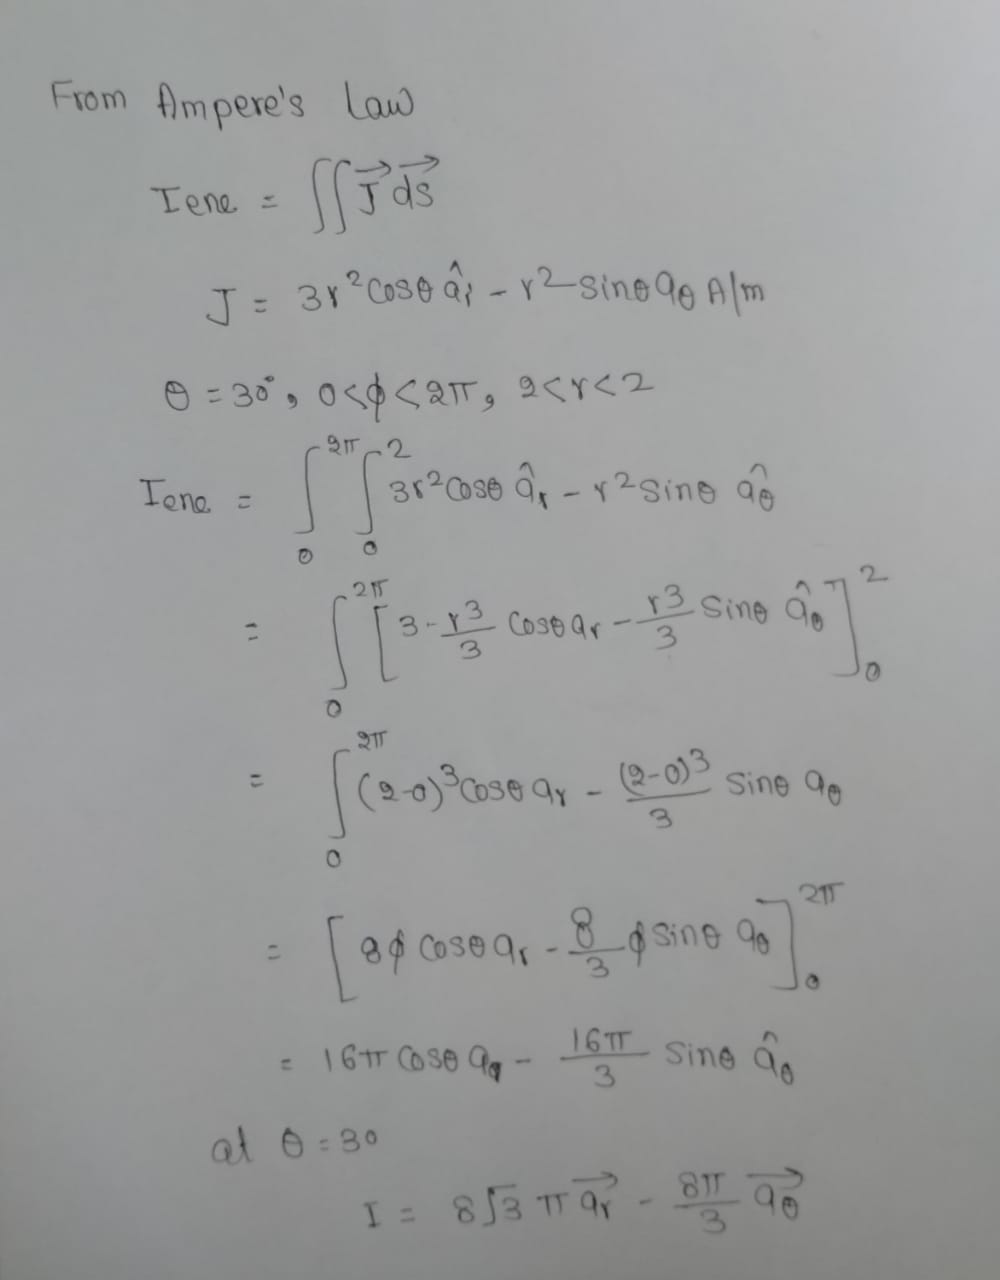 From Ampere's Law
Iene = ∬ J⃗ d⃗s
J = 3r²cosθ âᵣ - r²sinθ aθ A/m
θ = 30°, 0<ϕ<2π, 2<r<2
Iene = ∫₀^2π ∫₀^2 3r²cosθ âᵣ - r²sinθ âθ
= ∫₀^2π [3-r³/3 cosθ aᵣ - r³/3 sinθ âθ]₀^2
= ∫₀^2π (2-0)³cosθ aᵣ - (2-0)³/3 sinθ aθ
= [8ϕ cosθ aᵣ - 8/3 ϕ sinθ aθ]₀^2π
= 16π cosθ aᵣ - 16π/3 sinθ âθ
at θ = 30
I = 8√3 π a⃗ᵣ - 8π/3 a⃗θ